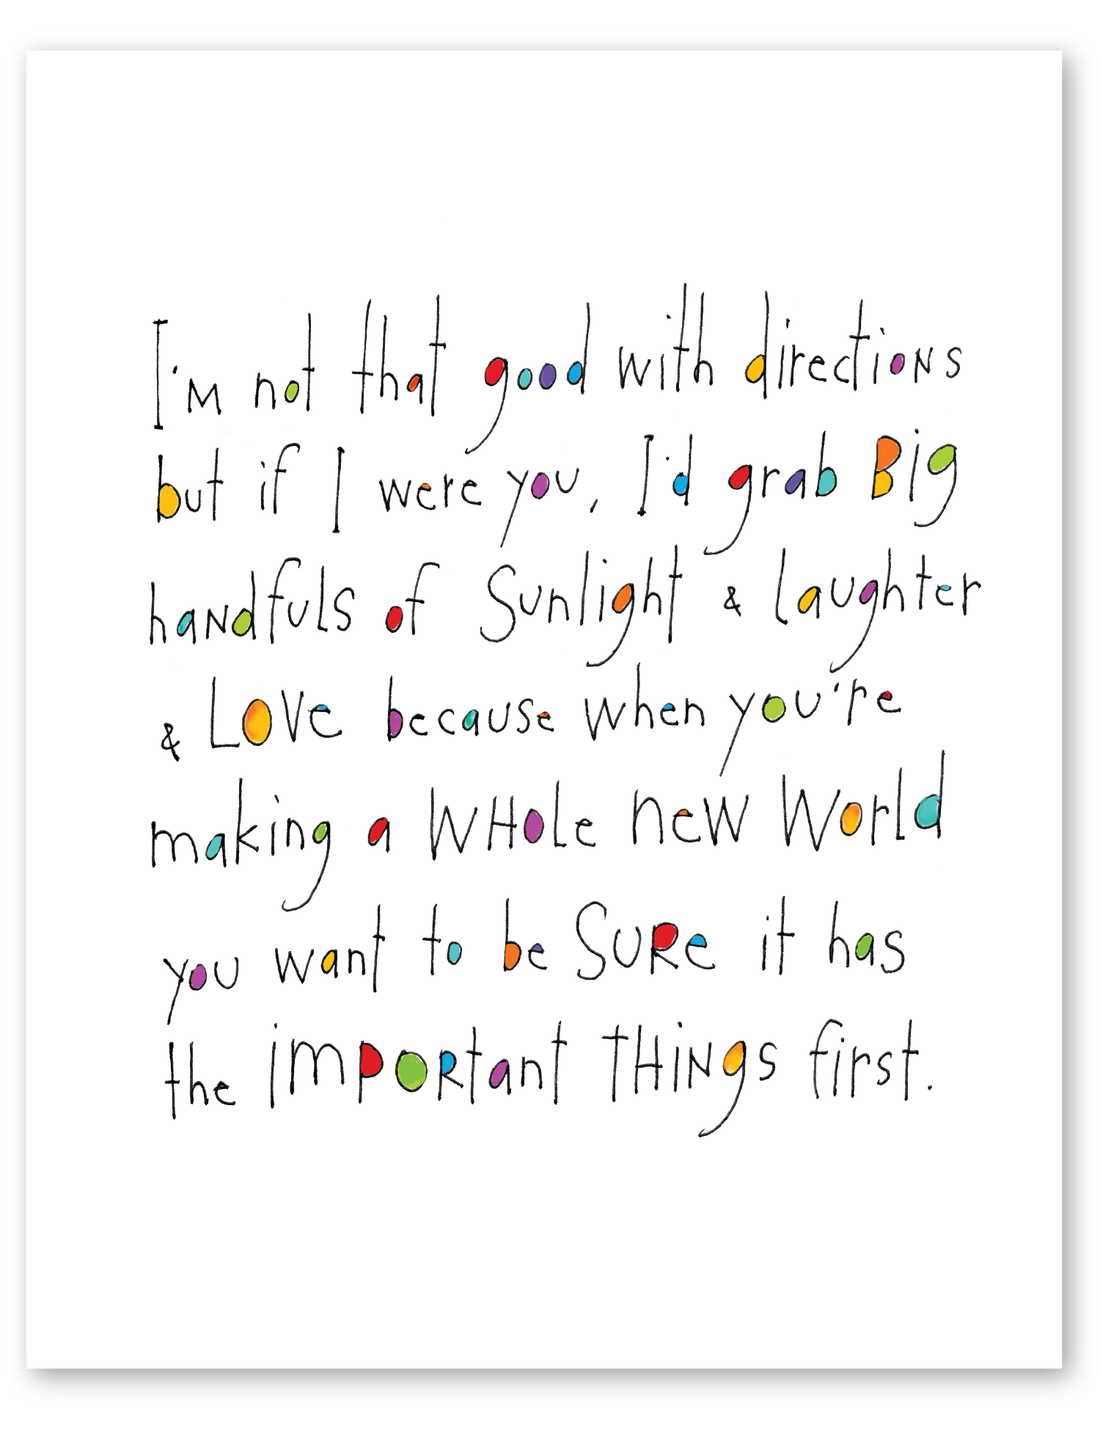 I'm not that good with directions
but if I were you, I'd grab Big
handfuls of Sunlight & laughter
& LOVe because when you're
making a WHoLe new World
you want to be SURe it has
the IMPORtant THiNgs first.